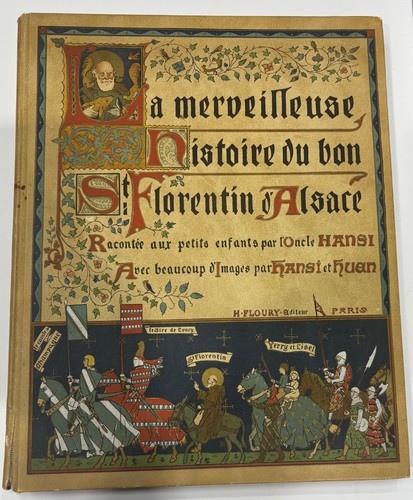 La merveilleuse
histoire du bon
St. Florentin d'Alsace
Racontée aux petits enfants par l'Oncle HANSI
Avec beaucoup d'Images par Hansi et Huen
H. FLOURY - Editeur PARIS
St Florentin
Yerry et Lisel